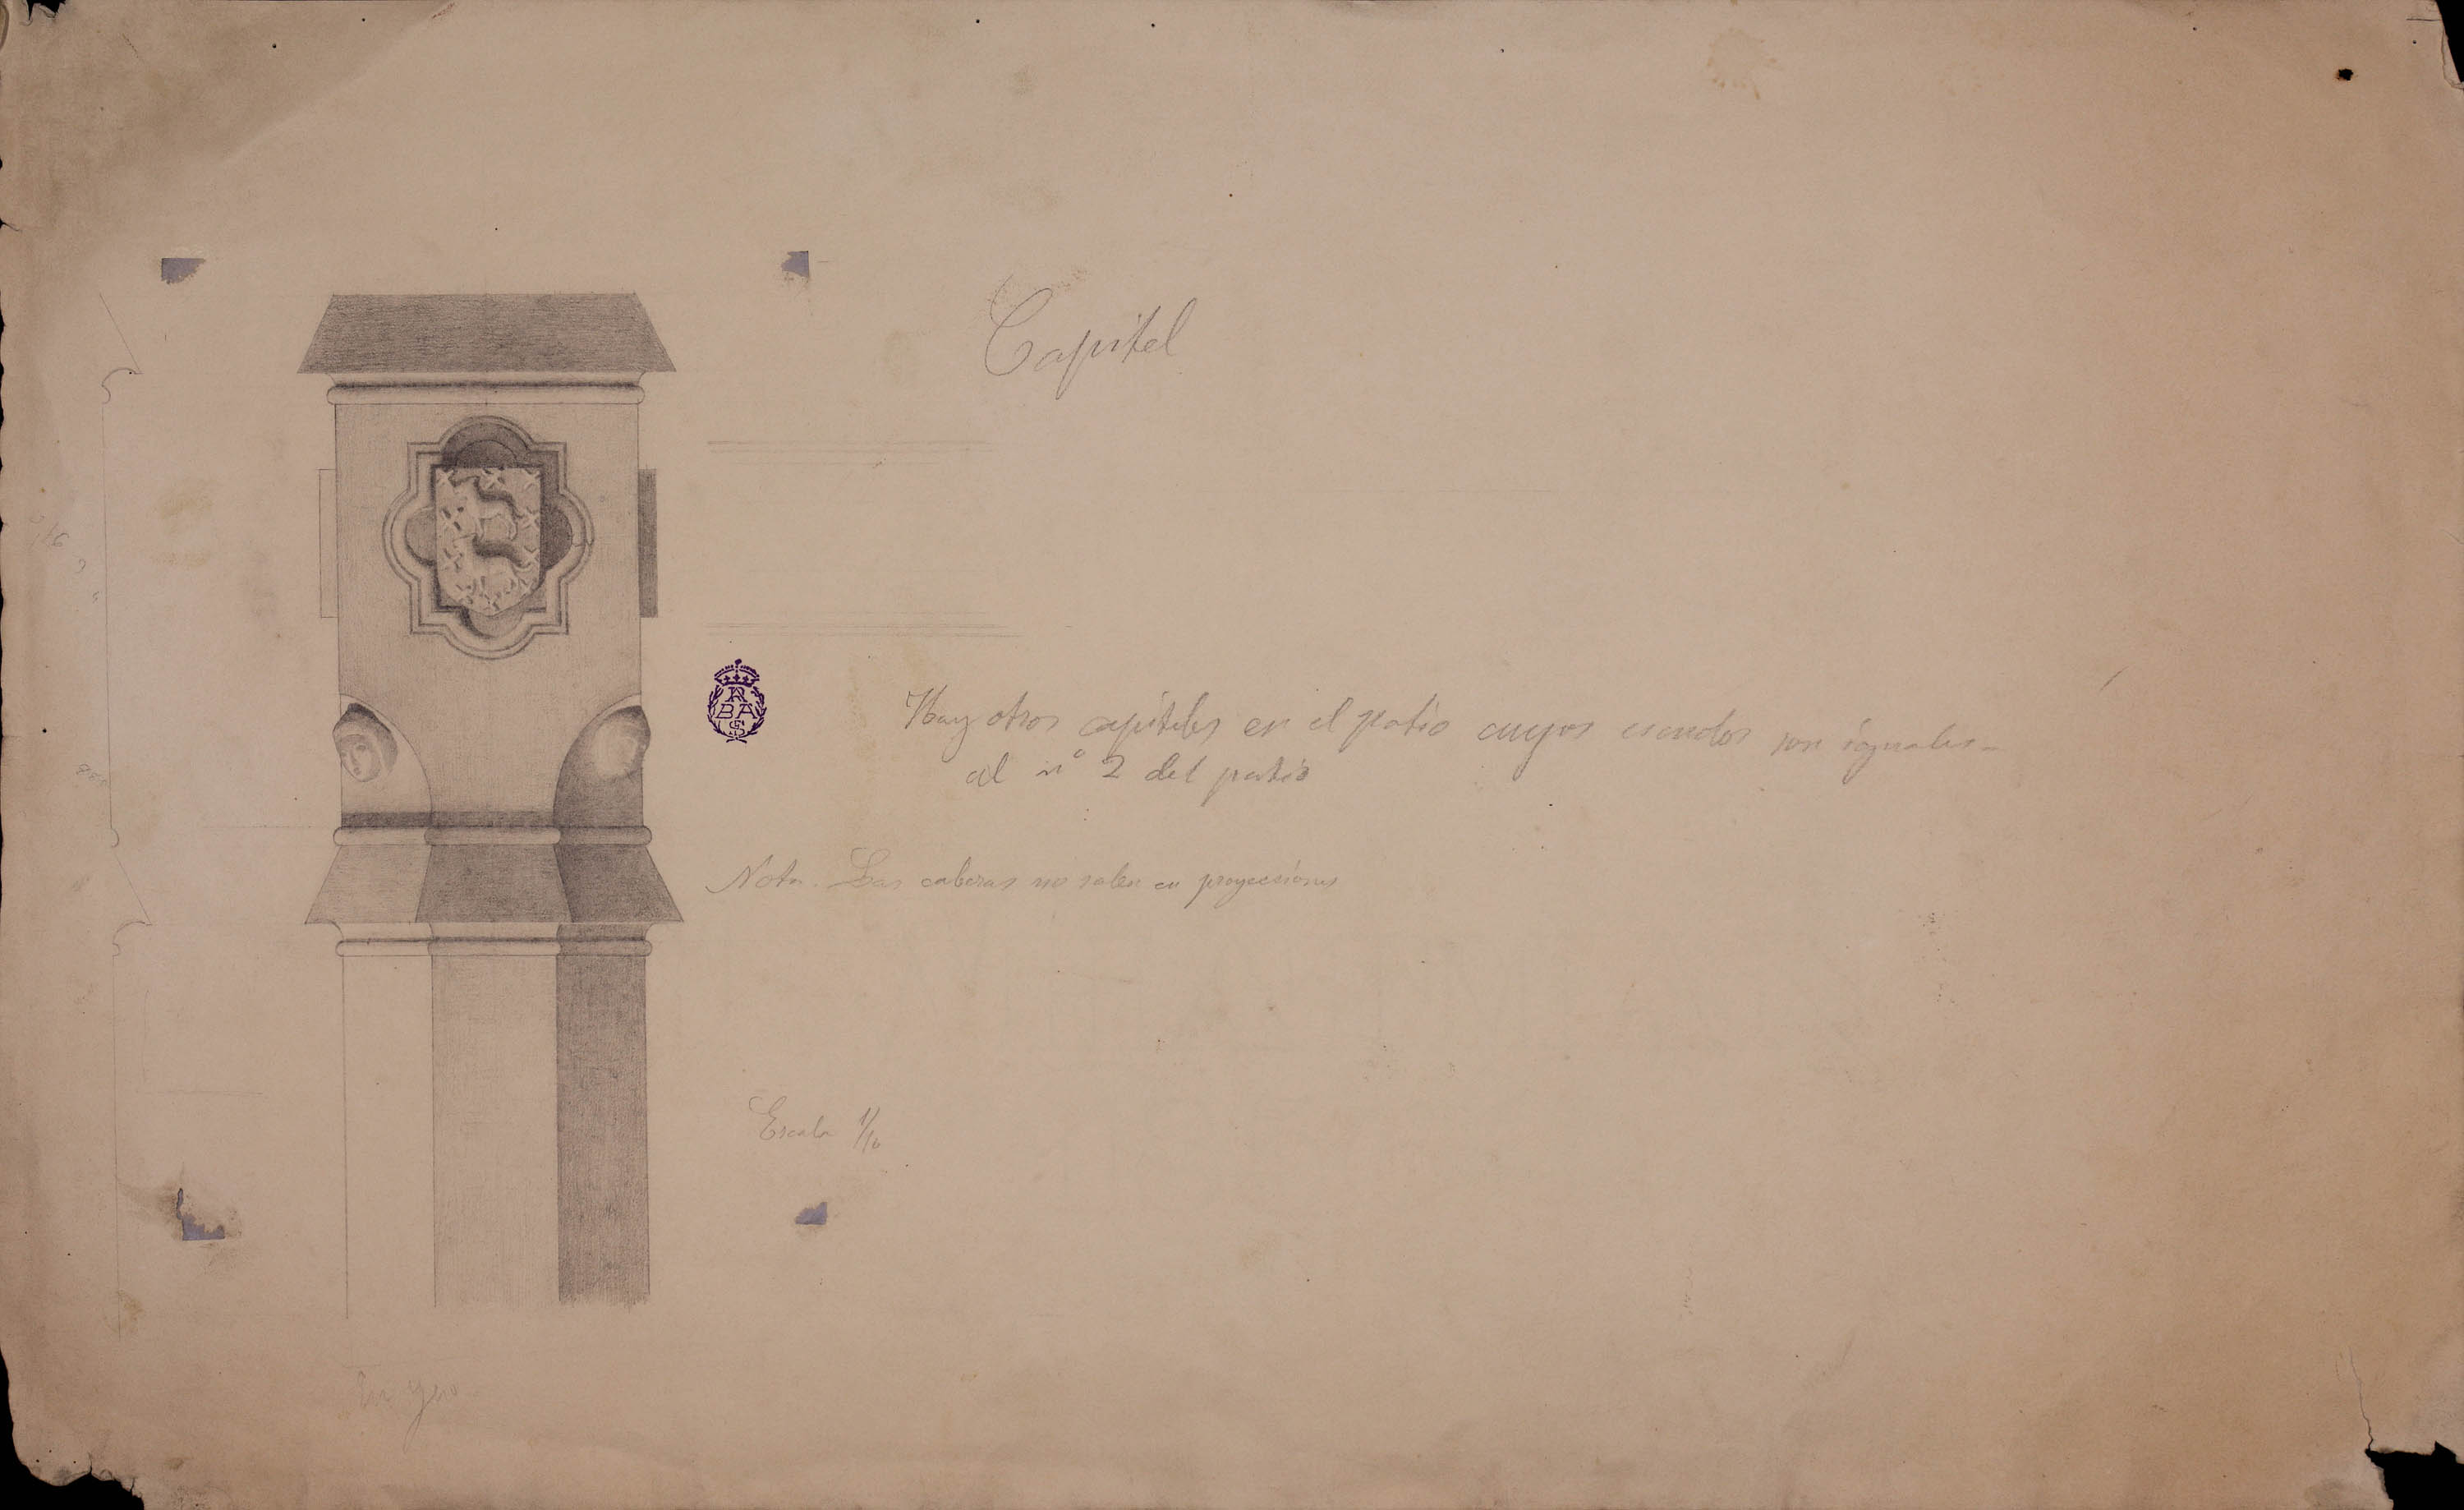 Capitel
R
BA
S
Hay otros capiteles en el patio cuyos escudos son iguales
al nº 2 del patio
Nota. Las cabezas no salen en proyecciones
Escala 1/10